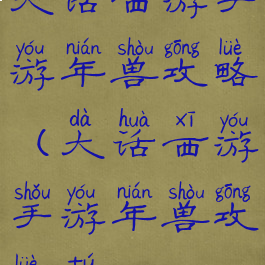 大话西游手
yóu nián shòu gōng lüè
游年兽攻略
dà huà xī yóu
（大话西游
shǒu yóu nián shòu gōng
手游年兽攻
lüè